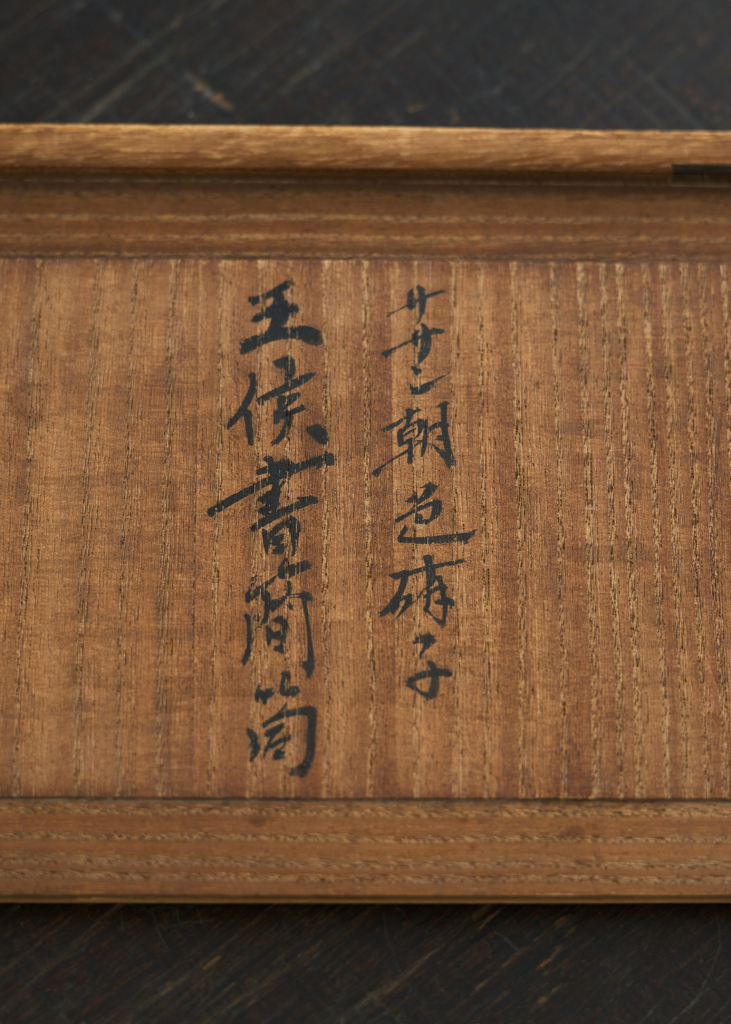 ササン朝色硝子
王侯書簡筒